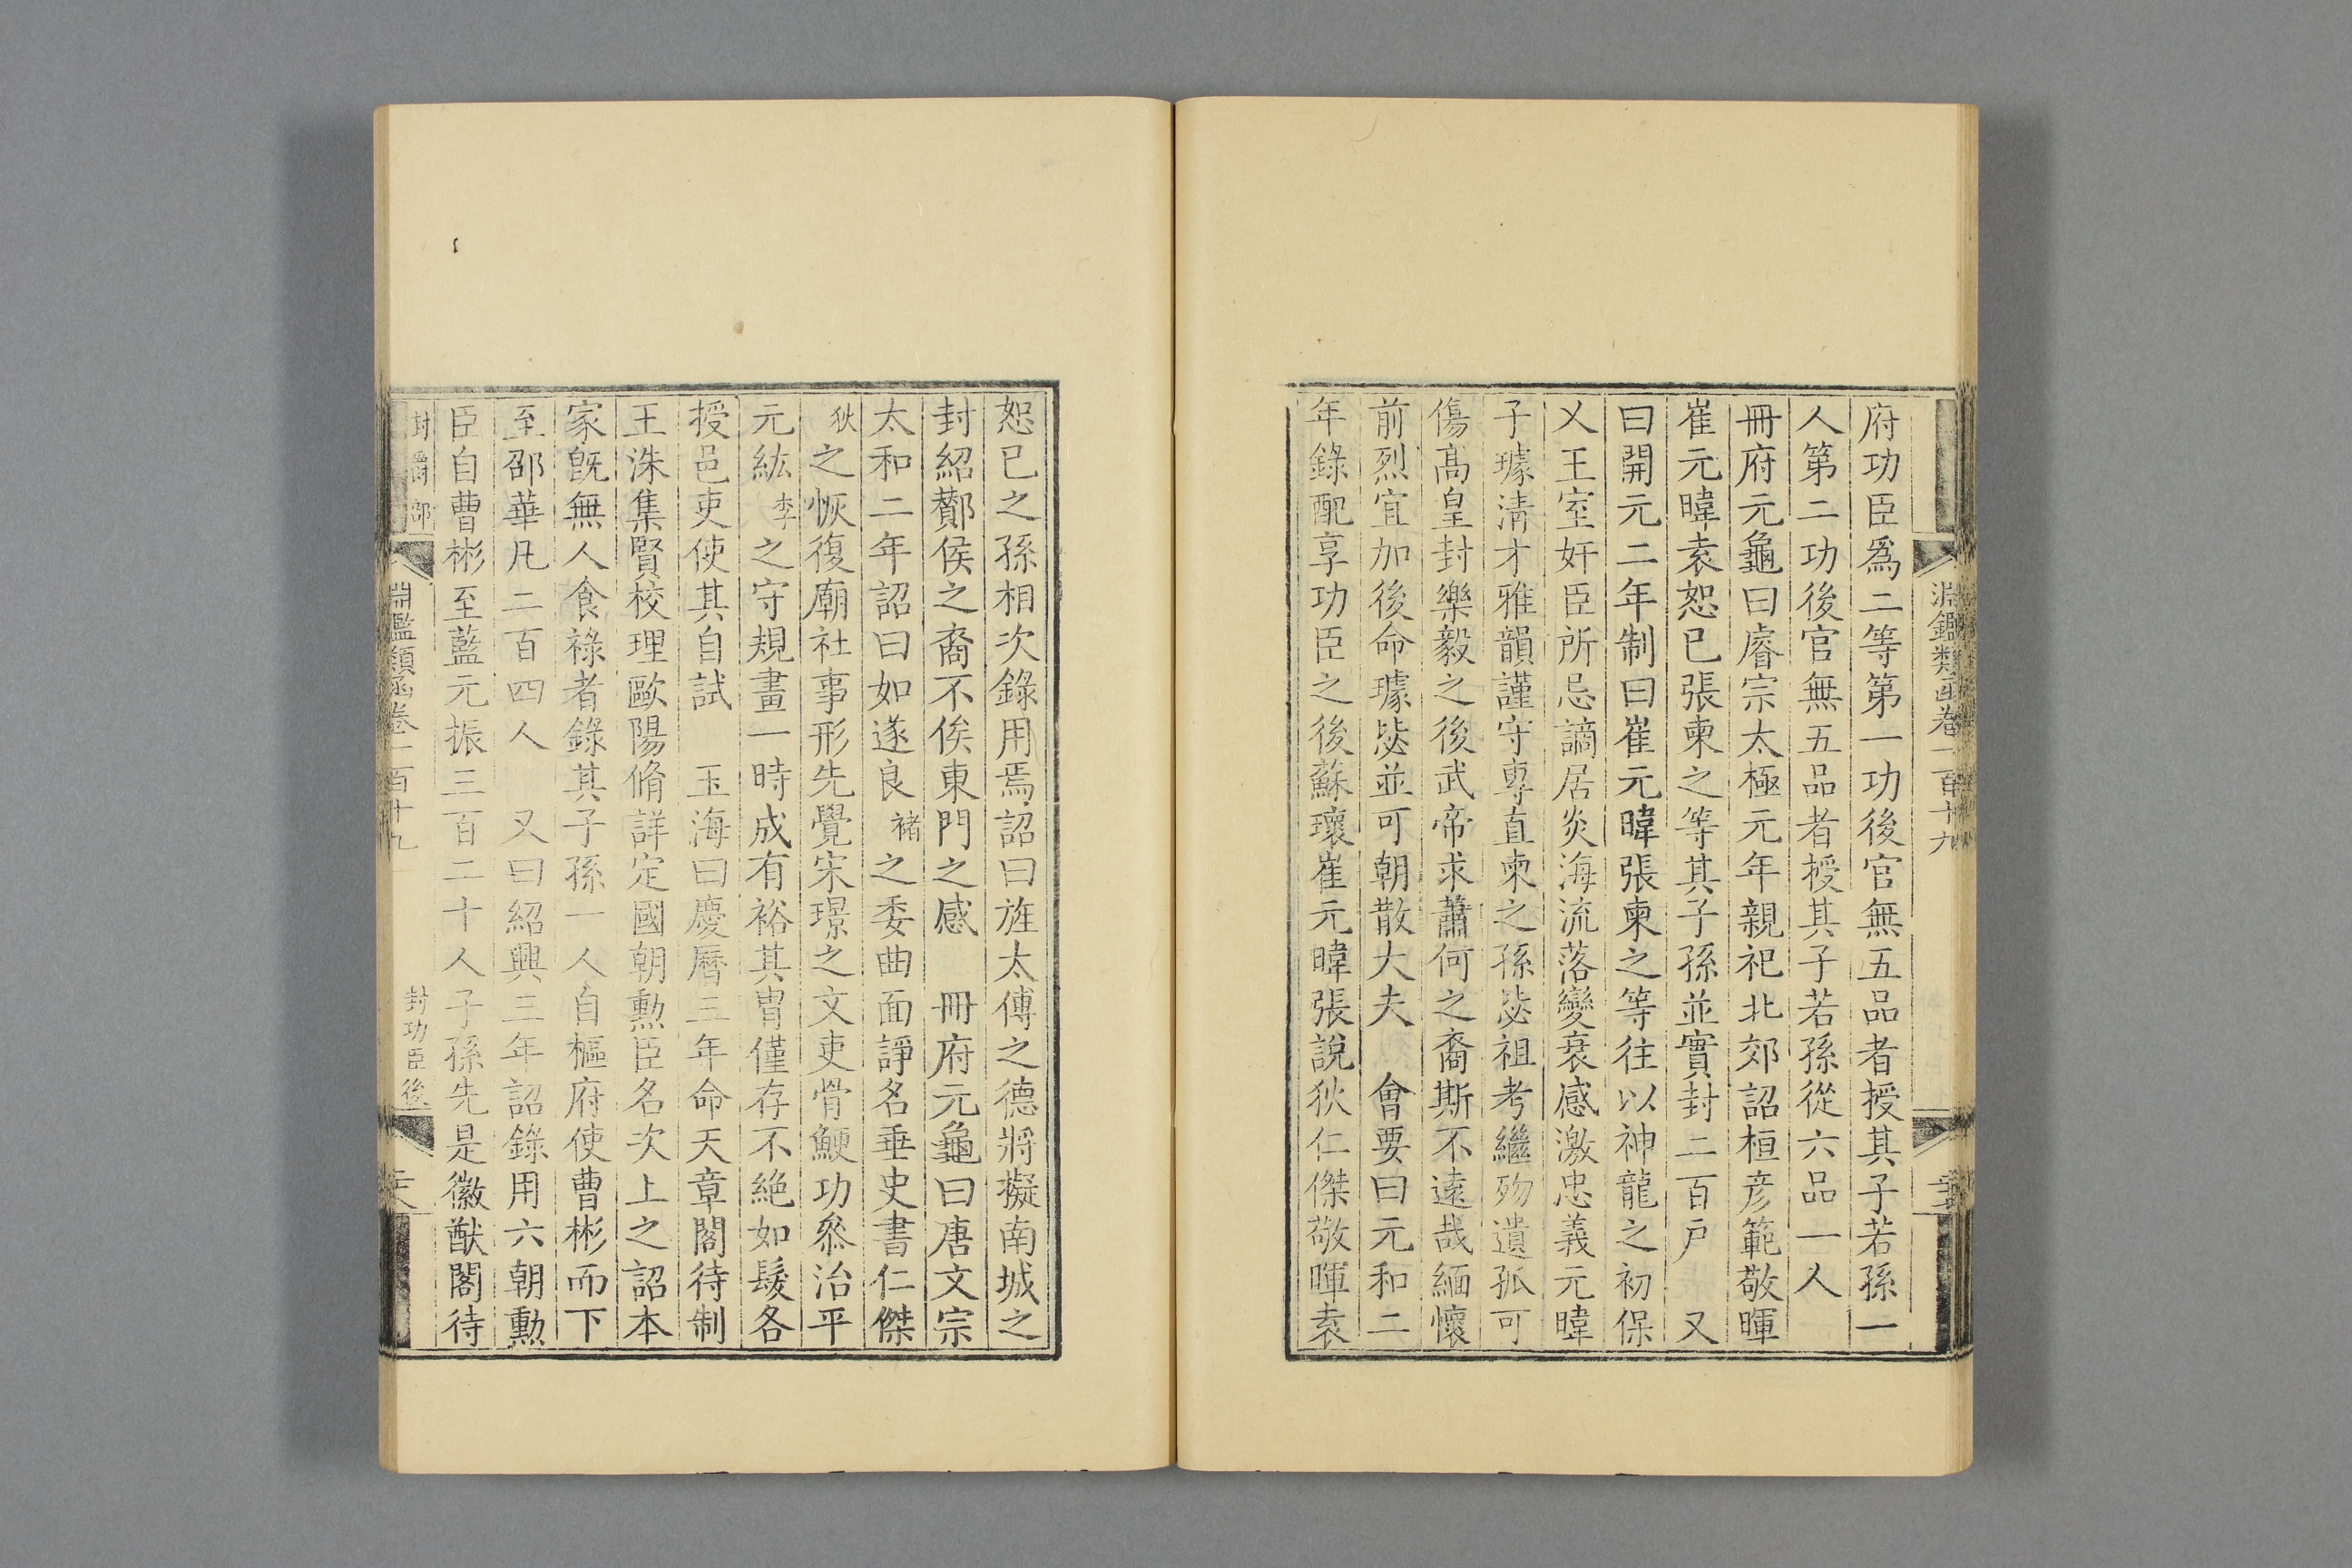 淵鑑類函卷一百十九
府功臣爲二等第一功後官無五品者授其子若孫一
人第二功後官無五品者授其子若孫從六品一人
冊府元龜曰睿宗太極元年親祀北郊詔桓彦範敬暉
崔元暐袁恕已張柬之等其子孫並實封二百戶　又
曰開元二年制曰崔元暐張柬之等往以神龍之初保
乂王室奸臣所忌謫居炎海流落變衰感激忠義元暐
子璩淸才雅韻謹守專直柬之孫毖祖考繼歿遺孤可
傷髙皇封樂毅之後武帝求蕭何之裔斯不遠哉緬懷
前烈宜加後命璩毖並可朝散大夫　會要曰元和二
年錄配享功臣之後蘇瓌崔元暐張說狄仁傑敬暉袁
恕已之孫相次錄用焉詔曰旌太傅之德將擬南城之
封紹酇侯之裔不俟東門之感　冊府元龜曰唐文宗
太和二年詔曰如遂良褚之委曲面諍名垂史書仁傑
狄之恢復廟社事形先覺宋璟之文吏骨鯁功叅治平
元紘李之守規畫一時成有裕其胄僅存不絕如髮各
授邑吏使其自試　玉海曰慶曆三年命天章閣待制
王洙集賢校理歐陽脩詳定國朝勲臣名次上之詔本
家旣無人食祿者錄其子孫一人自樞府使曹彬而下
至邵華凡二百四人　又曰紹興三年詔錄用六朝勲
臣自曹彬至藍元振三百二十人子孫先是徽猷閣待
封爵部　淵鑑類函卷一百十九　封功臣後